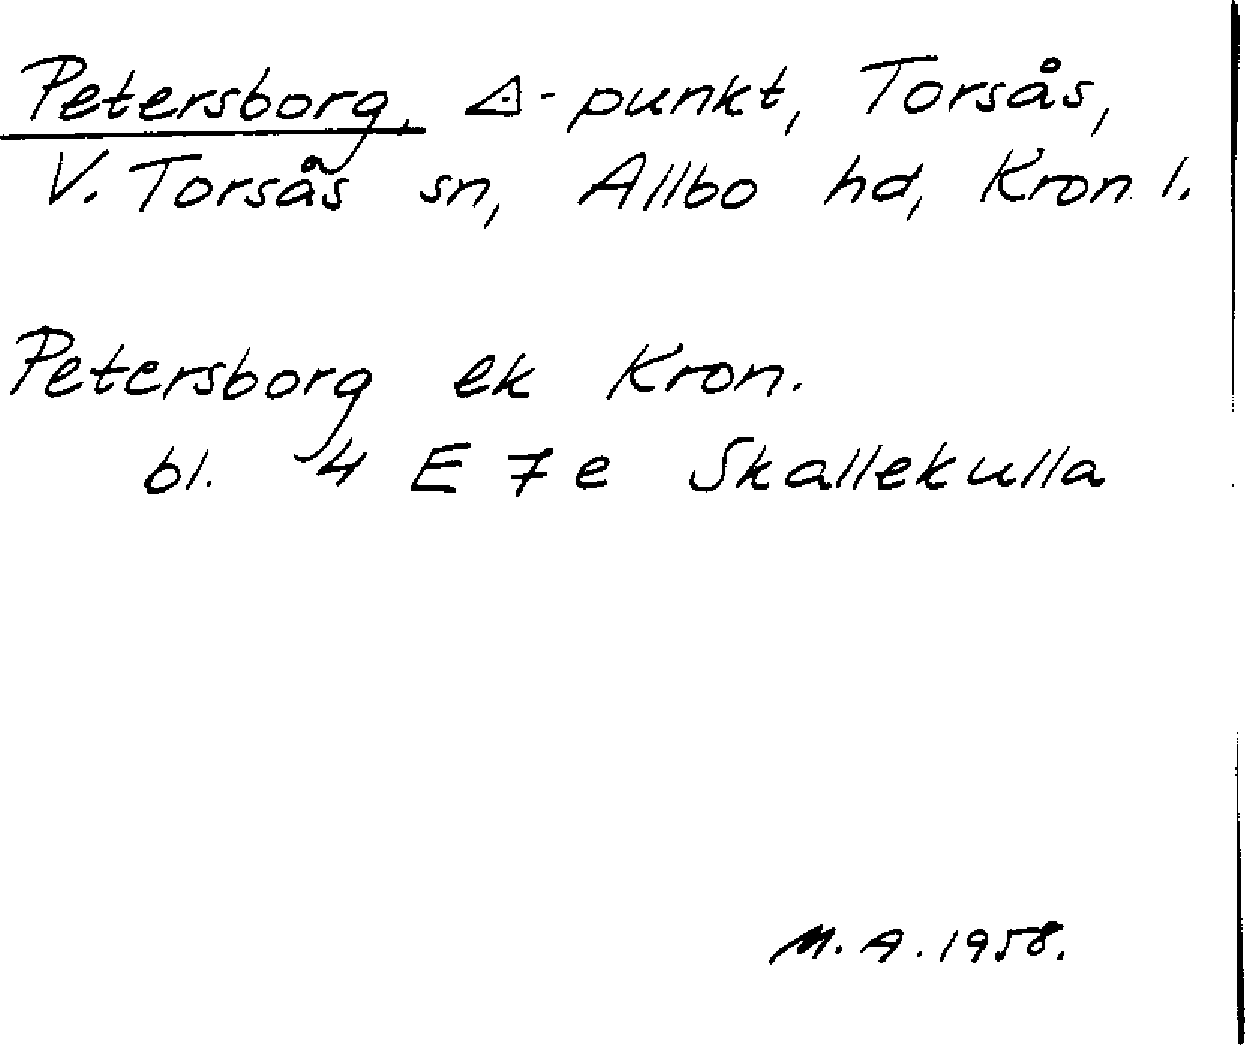 Petersborg, ⊿-punkt, Torsås,
V. Torsås sn, Allbo hd, Kron. l.
Petersborg ek Kron.
bl. 4 E 7 e Skallekulla
M. A. 1958.